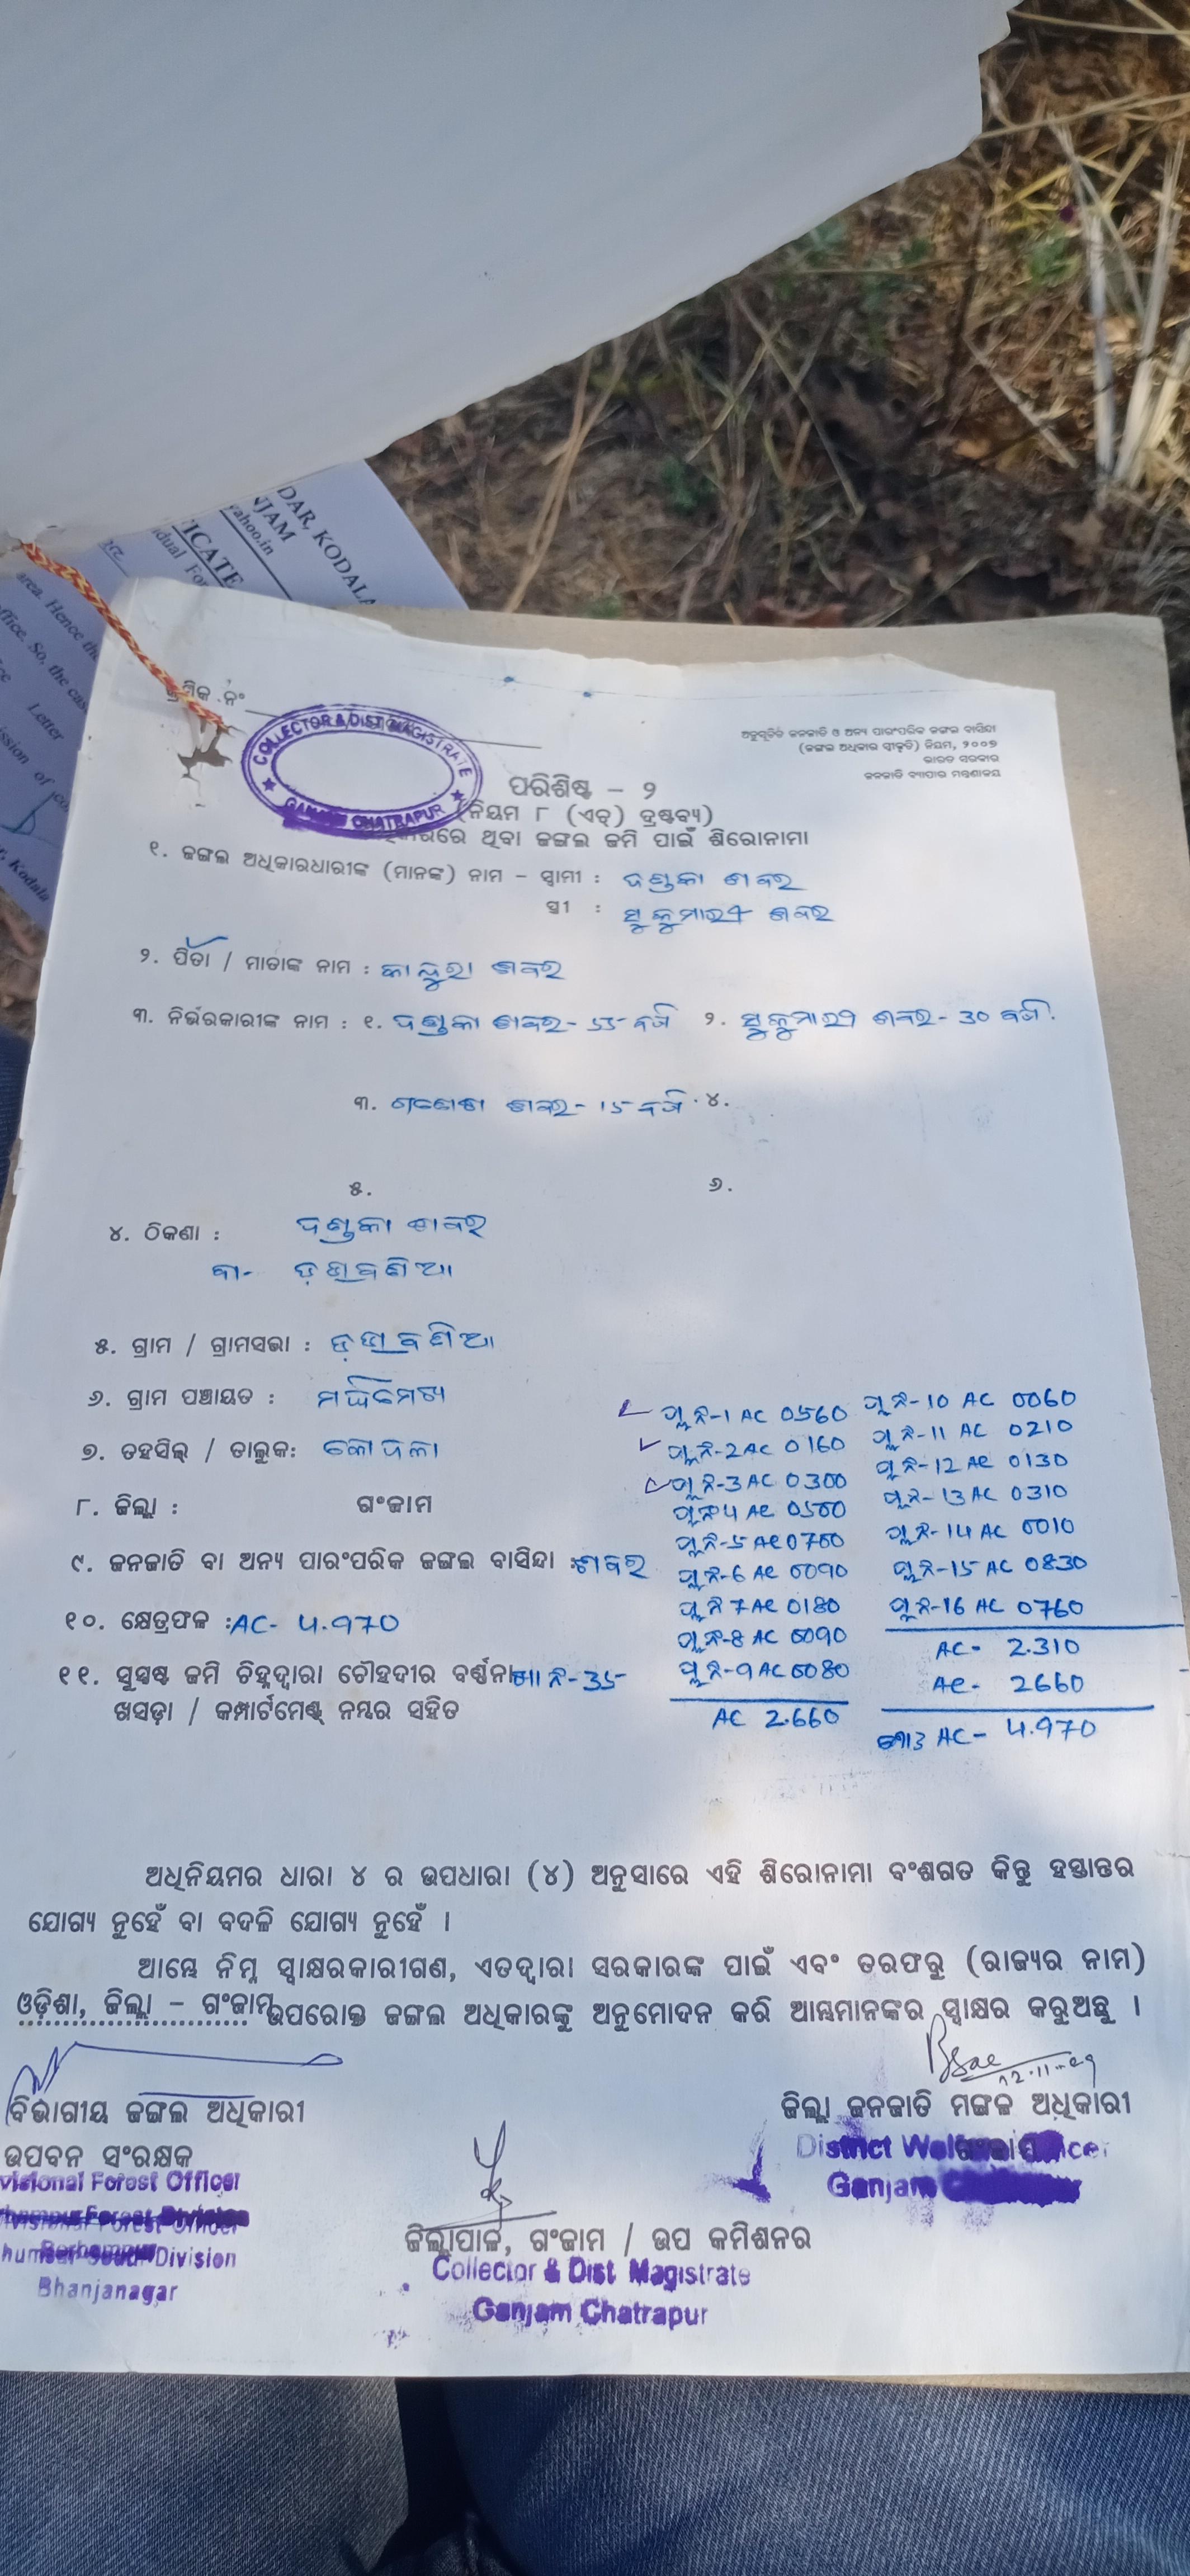 DAR, KODALA
NJAM
yahoo.in
ICATE
dual For
area. Hence the
ffice. So, the cas
Letter
ssion of
Kodala
କ୍ରମିକ ନଂ
COLLECTOR & DIST. MAGISTRATE
GANJAM CHATRAPUR
ଅନୁସୂଚିତ ଜନଜାତି ଓ ଅନ୍ୟ ପାରଂପରିକ ଜଙ୍ଗଲ ବାସିନ୍ଦା
(ଜଙ୍ଗଲ ଅଧିକାର ସ୍ୱୀକୃତି) ନିୟମ, ୨୦୦୭
ଭାରତ ସରକାର
ଜନଜାତି ବ୍ୟାପାର ମନ୍ତ୍ରଣାଳୟ
ପରିଶିଷ୍ଟ – ୨
(ନିୟମ ୮ (ଏଚ୍) ଦ୍ରଷ୍ଟବ୍ୟ)
ଥିବା ଜଙ୍ଗଲ ଜମି ପାଇଁ ଶିରୋନାମା
୧. ଜଙ୍ଗଲ ଅଧିକାରଧାରୀଙ୍କ (ମାନଙ୍କ) ନାମ – ସ୍ୱାମୀ : ଦଣ୍ଡକା ଶବର
ସ୍ତ୍ରୀ : ସୁକୁମାରୀ ଶବର
୨. ପିତା / ମାତାଙ୍କ ନାମ : ଶବର
୩. ନିର୍ଭରକାରୀଙ୍କ ନାମ : ୧. ଦଣ୍ଡକା ଶବର - 55 ବର୍ଷ ୨. ସୁକୁମାରୀ ଶବର - 30 ବର୍ଷ.
୩. ଶବର - 15 ବର୍ଷ ୪.
୫. ୬.
୪. ଠିକଣା : ଦଣ୍ଡକା ଶବର
୫. ଗ୍ରାମ / ଗ୍ରାମସଭା :
୬. ଗ୍ରାମ ପଞ୍ଚାୟତ :
୭. ତହସିଲ୍ / ତାଲୁକ: କୋଦଳା
୮. ଜିଲ୍ଲା : ଗଂଜାମ
୯. ଜନଜାତି ବା ଅନ୍ୟ ପାରଂପରିକ ଜଙ୍ଗଲ ବାସିନ୍ଦା : ଶବର
୧୦. କ୍ଷେତ୍ରଫଳ : AC- 4.970
୧୧. ସୁସ୍ପଷ୍ଟ ଜମି ଚିହ୍ନଦ୍ୱାରା ଚୌହଦୀର ବର୍ଣ୍ଣନା ନଂ-35
ଖସଡ଼ା / କମ୍ପାର୍ଟମେଣ୍ଟ ନମ୍ବର ସହିତ
ପ୍ଲ ନଂ-1 AC 0560
ପ୍ଲ ନଂ-2 AC 0160
ପ୍ଲ ନଂ-3 AC 0300
ପ୍ଲ ନଂ-4 AC 0500
ପ୍ଲ ନଂ-5 AC 0700
ପ୍ଲ ନଂ-6 AC 0090
ପ୍ଲ ନଂ-7 AC 0180
ପ୍ଲ ନଂ-8 AC 0090
ପ୍ଲ ନଂ-9 AC 0080
AC 2.660
ପ୍ଲ ନଂ-10 AC 0060
ପ୍ଲ ନଂ-11 AC 0210
ପ୍ଲ ନଂ-12 AC 0130
ପ୍ଲ ନଂ-13 AC 0310
ପ୍ଲ ନଂ-14 AC 0010
ପ୍ଲ ନଂ-15 AC 0830
ପ୍ଲ ନଂ-16 AC 0760
AC- 2.310
AC- 2660
ମୋଟ AC- 4.970
ଅଧିନିୟମର ଧାରା ୪ ର ଉପଧାରା (୪) ଅନୁସାରେ ଏହି ଶିରୋନାମା ବଂଶଗତ କିନ୍ତୁ ହସ୍ତାନ୍ତର
ଯୋଗ୍ୟ ନୁହେଁ ବା ବଦଳି ଯୋଗ୍ୟ ନୁହେଁ ।
ଆମ୍ଭେ ନିମ୍ନ ସ୍ୱାକ୍ଷରକାରୀଗଣ, ଏତଦ୍ୱାରା ସରକାରଙ୍କ ପାଇଁ ଏବଂ ତରଫରୁ (ରାଜ୍ୟର ନାମ)
ଓଡ଼ିଶା, ଜିଲ୍ଲା – ଗଂଜାମ ଉପରୋକ୍ତ ଜଙ୍ଗଲ ଅଧିକାରଙ୍କୁ ଅନୁମୋଦନ କରି ଆମ୍ଭମାନଙ୍କର ସ୍ୱାକ୍ଷର କରୁଅଛୁ ।
ବିଭାଗୀୟ ଜଙ୍ଗଲ ଅଧିକାରୀ
ଉପବନ ସଂରକ୍ଷକ
visional Forest Officer
Division
Bhanjanagar
ଜିଲ୍ଲାପାଳ, ଗଂଜାମ / ଉପ କମିଶନର
Collector & Dist. Magistrate
Ganjam Chatrapur
ଜିଲ୍ଲା ଜନଜାତି ମଙ୍ଗଳ ଅଧିକାରୀ
ଗଂଜାମ
District
Ganjam